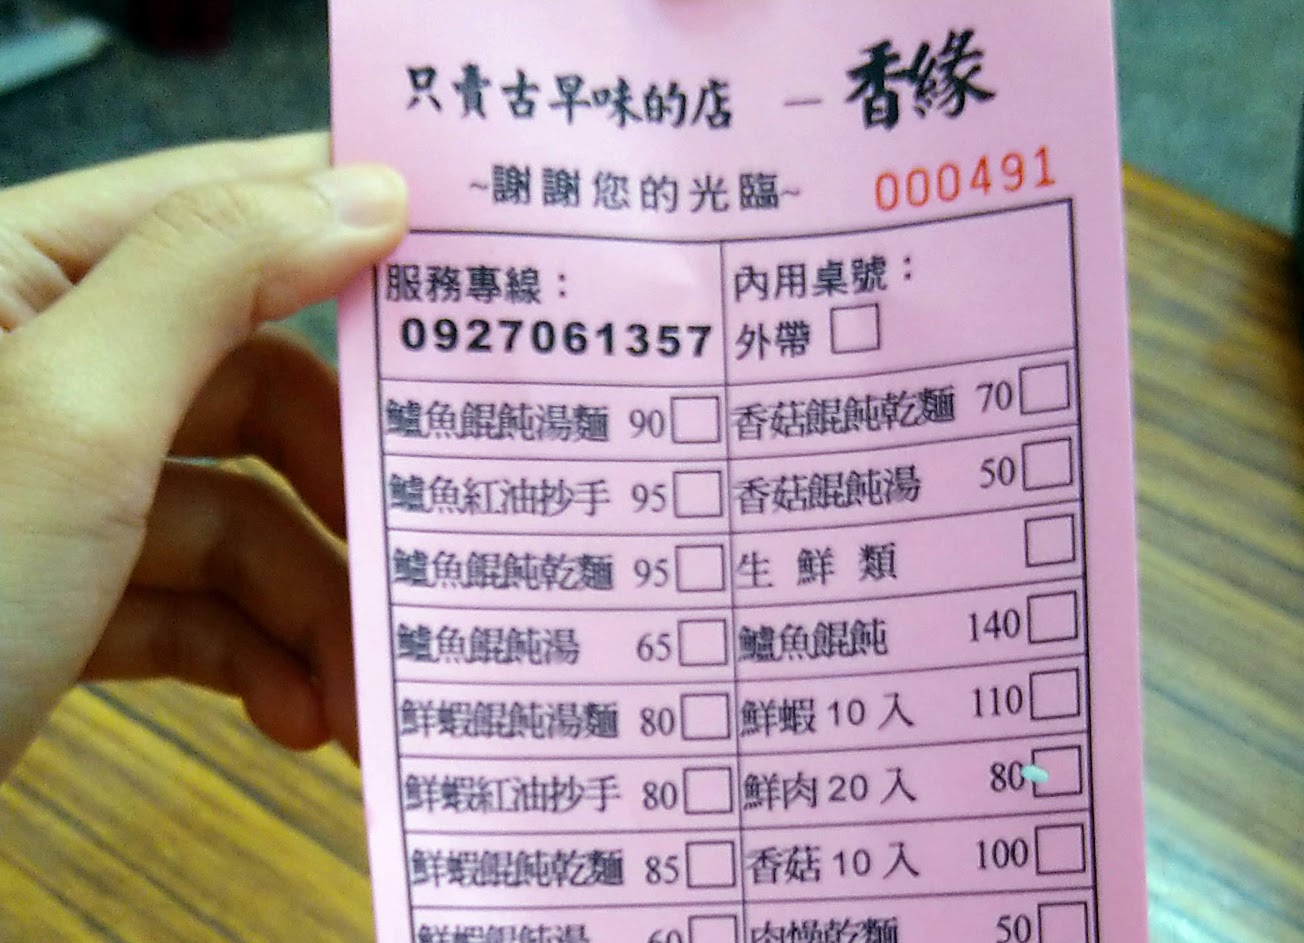 只賣古早味的店 — 香緣
~謝謝您的光臨~ 000491
服務專線：
0927061357
內用桌號：
外帶
鱸魚餛飩湯麵 90
香菇餛飩乾麵 70
鱸魚紅油抄手 95
香菇餛飩湯 50
鱸魚餛飩乾麵 95
生鮮類
鱸魚餛飩湯 65
鱸魚餛飩 140
鮮蝦餛飩湯麵 80
鮮蝦10入 110
鮮蝦紅油抄手 80
鮮肉20入 80
鮮蝦餛飩乾麵 85
香菇10入 100
鮮蝦餛飩湯 60
肉燥乾麵 50